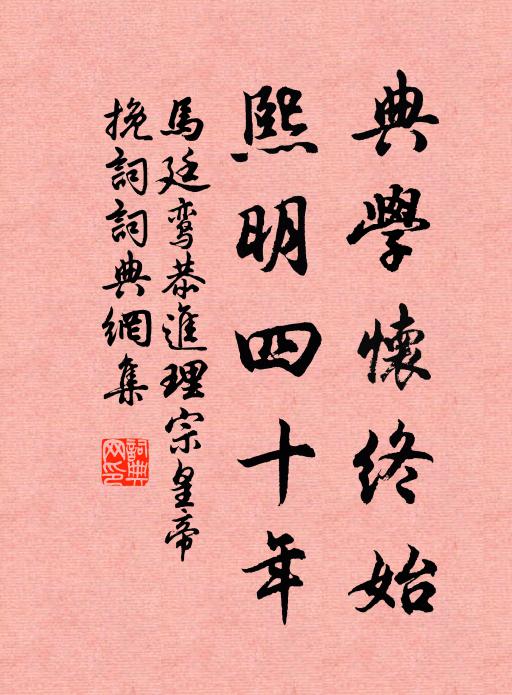 典學懷終始
熙明四十年
馬廷鸾恭進理宗皇帝
挽詞詞典網集
詞典网印